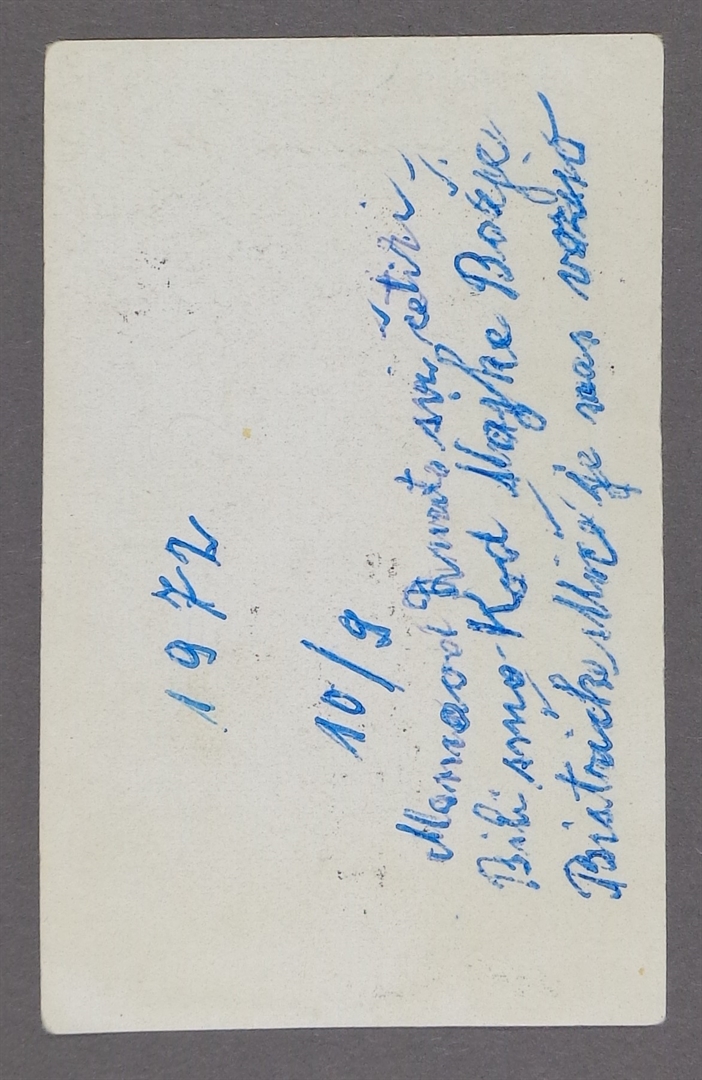 1972
10/9
Mama od Zvieta svi četiri,
Bili smo Kod Majke Božje
Bistričke Mićo je nas vozijo